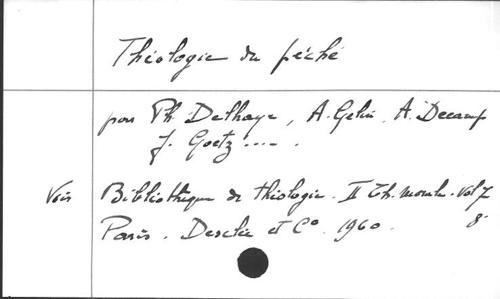 Théologie du péché
par Ph. Delhaye, A. Gelin, A. Decamps
J. Goetz .....
Vois Bibliothèque de théologie. II Th. morale. Vol 7
Paris. Desclée et Co. 1960. 8°